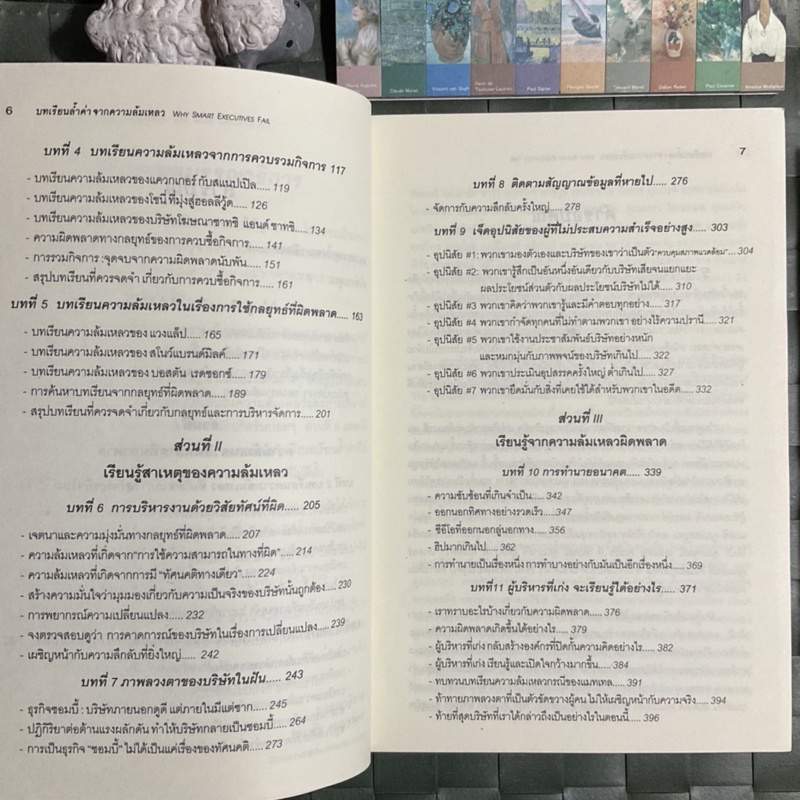 Claude Monet
Vincent van Gogh
Paul Signac
Edouard Manet
Paul Cezanne
6 บทเรียนล้ำค่า จากความล้มเหลว WHY SMART EXECUTIVES FAIL
บทที่ 4 บทเรียนความล้มเหลวจากการควบรวมกิจการ 117
- บทเรียนความล้มเหลวของแควกเกอร์ กับสแนปเปิล..... 119
- บทเรียนความล้มเหลวของโซนี่ ที่มุ่งสู่ฮอลลีวู้ด..... 126
- บทเรียนความล้มเหลวของบริษัทโฆษณาซาทชิ แอนด์ ซาทชิ..... 134
- ความผิดพลาดทางกลยุทธ์ของการควบซื้อกิจการ..... 141
- การรวมกิจการ :จุดจบจากความผิดพลาดนับพัน..... 151
- สรุปบทเรียนที่ควรจดจำ เกี่ยวกับการควบซื้อกิจการ..... 161
บทที่ 5 บทเรียนความล้มเหลวในเรื่องการใช้กลยุทธ์ที่ผิดพลาด..... 163
- บทเรียนความล้มเหลวของ แวงแล็ป..... 165
- บทเรียนความล้มเหลวของ สโนว์แบรนด์มิลค์..... 171
- บทเรียนความล้มเหลวของ บอสตัน เรดซอกซ์..... 179
- การค้นหาบทเรียนจากกลยุทธ์ที่ผิดพลาด..... 189
- สรุปบทเรียนที่ควรจดจำเกี่ยวกับกลยุทธ์และการบริหารจัดการ..... 201
ส่วนที่ II
เรียนรู้สาเหตุของความล้มเหลว
บทที่ 6 การบริหารงานด้วยวิสัยทัศน์ที่ผิด..... 205
- เจตนาและความมุ่งมั่นทางกลยุทธ์ที่ผิดพลาด..... 207
- ความล้มเหลวที่เกิดจาก"การใช้ความสามารถในทางที่ผิด"..... 214
- ความล้มเหลวที่เกิดจากการมี "ทัศนคติทางเดียว"..... 224
- สร้างความมั่นใจว่ามุมมองเกี่ยวกับความเป็นจริงของบริษัทนั้นถูกต้อง..... 230
- การพยากรณ์ความเปลี่ยนแปลง..... 232
- จงตรวจสอบดูว่า การคาดการณ์ของบริษัทในเรื่องการเปลี่ยนแปลง..... 239
- เผชิญหน้ากับความลึกลับที่ยิ่งใหญ่..... 242
บทที่ 7 ภาพลวงตาของบริษัทในฝัน..... 243
- ธุรกิจซอมบี้ : บริษัทภายนอกดูดี แต่ภายในมีแต่ซาก..... 245
- ปฏิกิริยาต่อต้านแรงผลักดัน ทำให้บริษัทกลายเป็นซอมบี้..... 264
- การเป็นธุรกิจ "ซอมบี้" ไม่ได้เป็นแค่เรื่องของทัศนคติ..... 273
7
บทที่ 8 ติดตามสัญญาณข้อมูลที่หายไป..... 276
- จัดการกับความลึกลับครั้งใหญ่..... 278
บทที่ 9 เจ็ดอุปนิสัยของผู้ที่ไม่ประสบความสำเร็จอย่างสูง..... 303
- อุปนิสัย #1: พวกเขามองตัวเองและบริษัทของเขาว่าเป็นตัว"ควบคุมสภาพแวดล้อม"...304
- อุปนิสัย #2: พวกเขารู้สึกเป็นอันหนึ่งอันเดียวกับบริษัทเสียจนแยกแยะ
ผลประโยชน์ส่วนตัวกับผลประโยชน์บริษัทไม่ได้..... 310
- อุปนิสัย #3 พวกเขาคิดว่าพวกเขารู้และมีคำตอบทุกอย่าง..... 317
- อุปนิสัย #4 พวกเขากำจัดทุกคนที่ไม่ทำตามพวกเขา อย่างไร้ความปรานี..... 321
- อุปนิสัย #5 พวกเขาใช้งานประชาสัมพันธ์บริษัทอย่างหนัก
และหมกมุ่นกับภาพพจน์ของบริษัทเกินไป..... 322
- อุปนิสัย #6 พวกเขาประเมินอุปสรรคครั้งใหญ่ ต่ำเกินไป..... 327
- อุปนิสัย #7 พวกเขายึดมั่นกับสิ่งที่เคยใช้ได้สำหรับพวกเขาในอดีต..... 332
ส่วนที่ III
เรียนรู้จากความล้มเหลวผิดพลาด
บทที่ 10 การทำนายอนาคต..... 339
- ความซับซ้อนที่เกินจำเป็น..... 342
- ออกนอกทิศทางอย่างรวดเร็ว.....347
- ซีอีโอที่ออกนอกลู่นอกทาง..... 356
- ฮิปมากเกินไป..... 362
- การทำนายเป็นเรื่องหนึ่ง การทำบางอย่างกับมันเป็นอีกเรื่องหนึ่ง..... 369
บทที่11 ผู้บริหารที่เก่ง จะเรียนรู้ได้อย่างไร..... 371
- เราทราบอะไรบ้างเกี่ยวกับความผิดพลาด..... 376
- ความผิดพลาดเกิดขึ้นได้อย่างไร..... 379
- ผู้บริหารที่เก่ง กลับสร้างองค์กรที่ปิดกั้นความคิดอย่างไร..... 382
- ผู้บริหารที่เก่ง เรียนรู้และเปิดใจกว้างมากขึ้น..... 384
- ทบทวนบทเรียนความล้มเหลวกรณีของแมทเทล..... 391
- ท้าทายภาพลวงตาที่เป็นตัวขัดขวางผู้คน ไม่ให้เผชิญหน้ากับความจริง..... 394
- ท้ายที่สุดบริษัทที่เราได้กล่าวถึงเป็นอย่างไรในตอนนี้..... 396